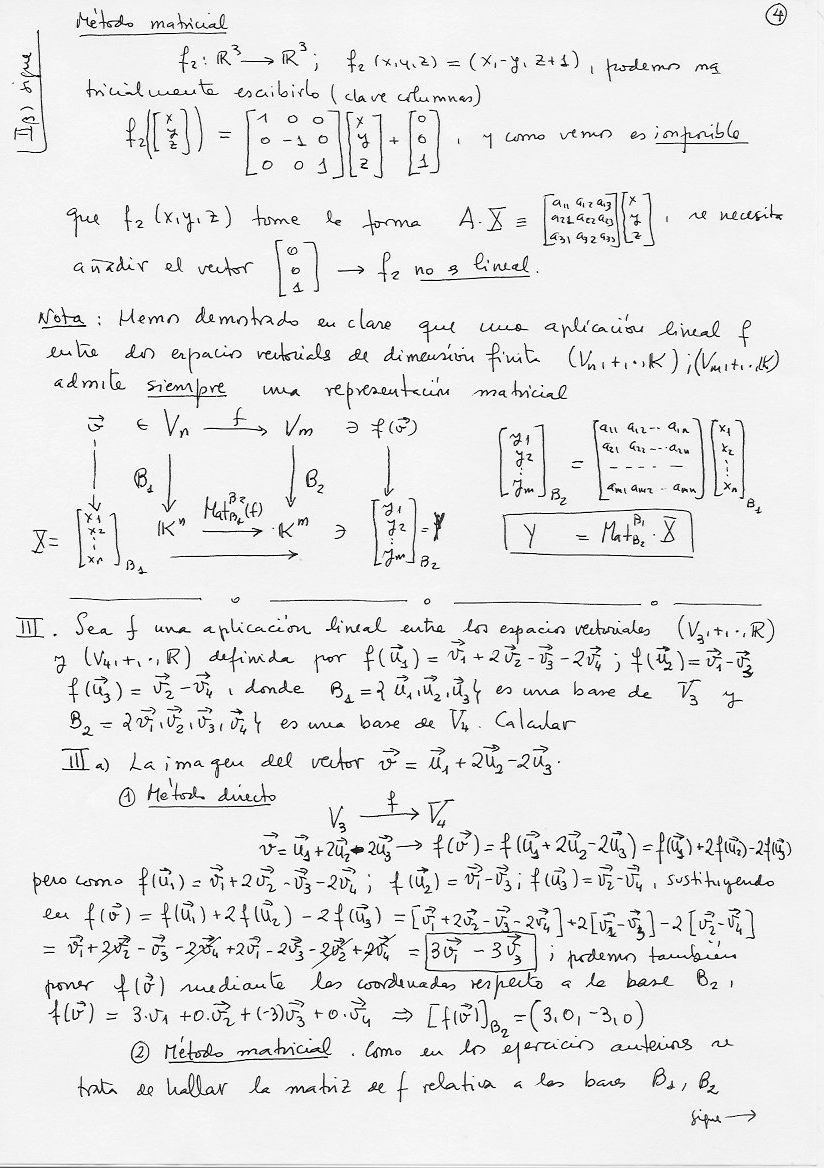 ④
II β) sigue
Método matricial
f₂: ℝ³ → ℝ³; f₂(x,y,z) = (x,-y, z+1), podemos ma
tricialmente escribirlo (clave columnas)
f₂([x y z]) = [1 0 0; 0 -1 0; 0 0 1] [x y z] + [0 0 1], y como vemos es imposible
que f₂(x,y,z) tome la forma A·X ≡ [a11 a12 a13; a21 a22 a23; a31 a32 a33] [x y z], se necesita
añadir el vector [0 0 1] → f₂ no es lineal.
Nota: Hemos demostrado en clase que una aplicación lineal f
entre dos espacios vectoriales de dimensión finita (Vn,+,·,K); (Vm,+,·,K)
admite siempre una representación matricial
v⃗ ∈ Vn —f→ Vm ∋ f(v⃗)
B₁ B₂
X = [x1 x2 ⋮ xn]B₁ Kⁿ —Mat B₂ B₁ (f)→ Kᵐ ∋ [y1 y2 ⋮ ym]B₂ = Y
[y1 y2 ⋮ ym]B₂ = [a11 a12 -- a1n; a21 a22 --- a2n; - - - - -; am1 am2 -- amn] [x1 x2 ⋮ xn]B₁
Y = Mat B₁ B₂ · X
III. Sea f una aplicación lineal entre los espacios vectoriales (V₃,+,·,ℝ)
y (V₄,+,·,ℝ) definida por f(u⃗₁) = v⃗₁+2v⃗₂-v⃗₃-2v⃗₄; f(u⃗₂)=v⃗₁-v⃗₃
f(u⃗₃) = v⃗₂-v⃗₄, donde B₁={u⃗₁,u⃗₂,u⃗₃} es una base de V₃ y
B₂={v⃗₁,v⃗₂,v⃗₃,v⃗₄} es una base de V₄. Calcular
III a) La imagen del vector v⃗ = u⃗₁+2u⃗₂-2u⃗₃.
① Método directo
V₃ —f→ V₄
v⃗=u⃗₁+2u⃗₂-2u⃗₃ → f(v⃗)=f(u⃗₁+2u⃗₂-2u⃗₃)=f(u⃗₁)+2f(u⃗₂)-2f(u⃗₃)
pero como f(u⃗₁)=v⃗₁+2v⃗₂-v⃗₃-2v⃗₄; f(u⃗₂)=v⃗₁-v⃗₃; f(u⃗₃)=v⃗₂-v⃗₄, sustituyendo
en f(v⃗) = f(u⃗₁)+2f(u⃗₂)-2f(u⃗₃) = [v⃗₁+2v⃗₂-v⃗₃-2v⃗₄]+2[v⃗₁-v⃗₃]-2[v⃗₂-v⃗₄]
= v⃗₁+2v⃗₂-v⃗₃-2v⃗₄+2v⃗₁-2v⃗₃-2v⃗₂+2v⃗₄ = 3v⃗₁-3v⃗₃; podemos también
poner f(v⃗) mediante las coordenadas respecto a la base B₂,
f(v⃗) = 3·v₁+0·v⃗₂+(-3)v⃗₃+0·v⃗₄ ⇒ [f(v⃗)]B₂=(3,0,-3,0)
② Método matricial. Como en los ejercicios anteriores se
trata de hallar la matriz de f relativa a las bases B₁, B₂
sigue →